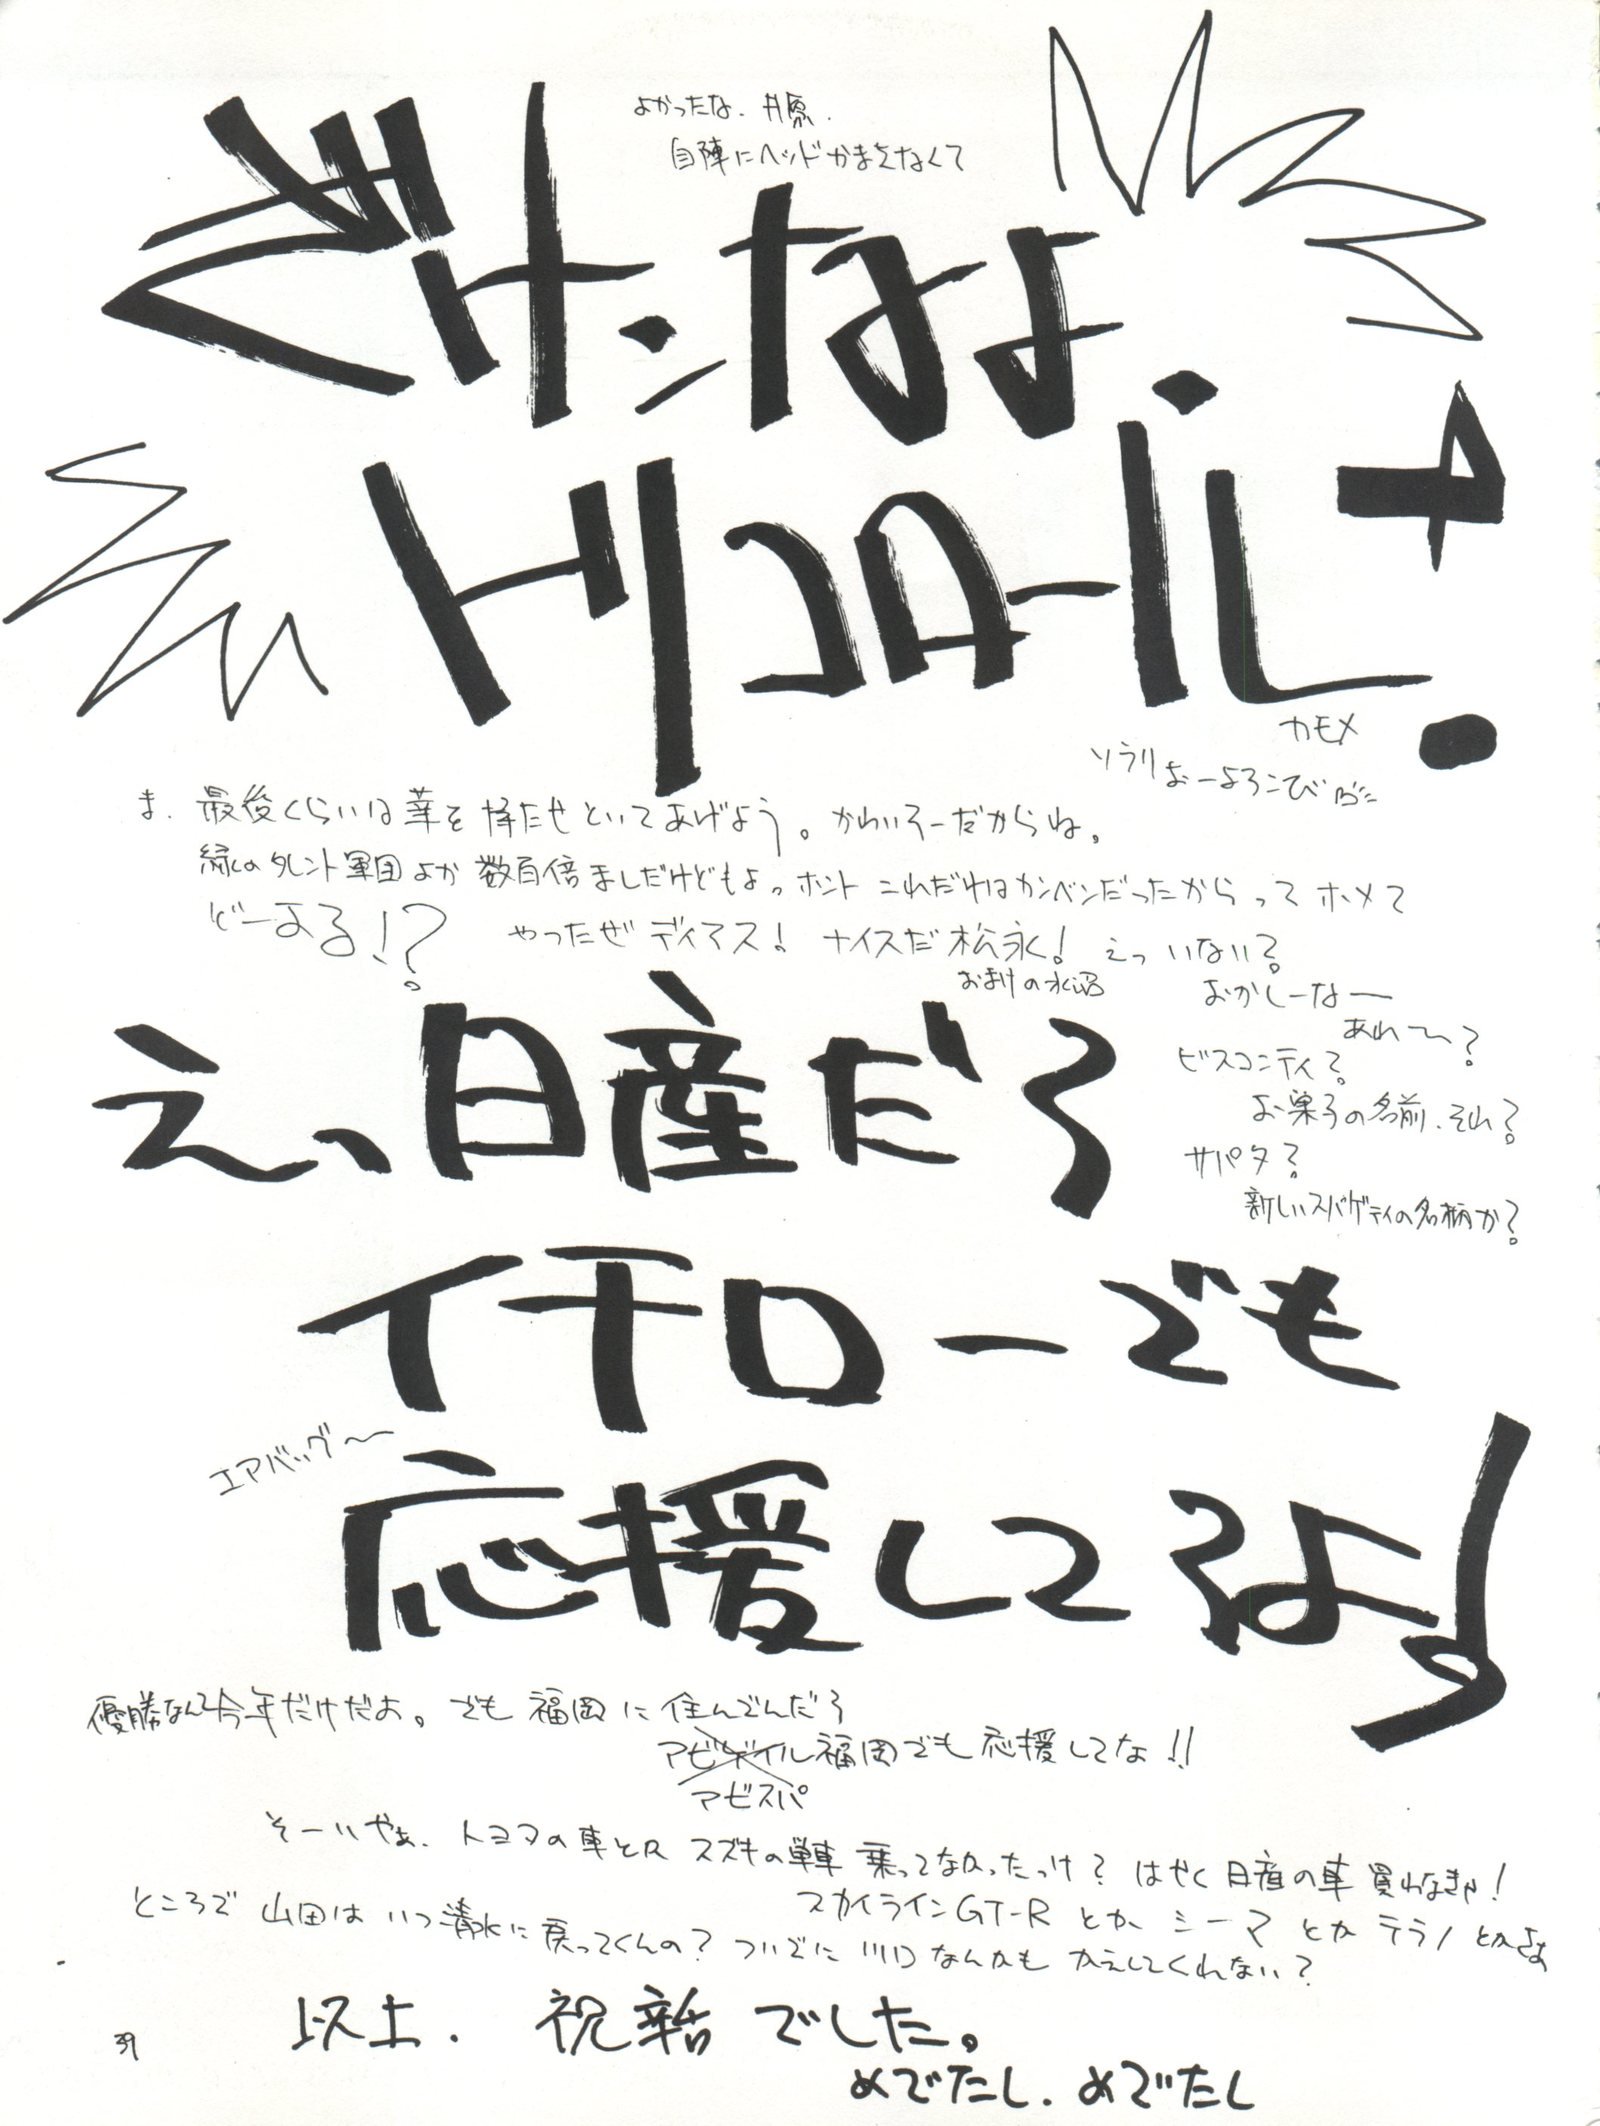 よかったな、井原.
自陣にヘッドかまえなくて
ざけンなよ、
トリコロール!
カモメ
ソラリ
おーよろこびぶに
ま、最後くらいは華を持たせといてあげよう。かわいそーだからね。
緑のタレント軍団よか数百倍ましだけどもよっホント これだれはカンベンだったからってホメて
どーする!?
やったぜディアス! ナイスだ松永! えっいない?
おまけの水沼
おかしーなー
あれ〜?
ビスコンティ?
お菓子の名前、それ?
サパタ?
新しいスパゲティの名柄か?
えっ、日産だろ
イチローでも
エアバッグ〜
応援してろよ!
優勝なんて今年だけだよ。でも福岡に住んでんだろ
アビスパ福岡でも応援してな!!
アビスパ
そーいやぁ、トヨタの車とか スズキの単車 乗ってなかったっけ? はやく日産の車買わなきゃ!
スカイラインGT-R とか シーマ とか テラノ とかさぁ
ところで 山田は いつ清水に戻ってくんの? ついでに 川口なんかも かえしてくれない?
以上. 祝辞 でした。
めでたし、めでたし
39